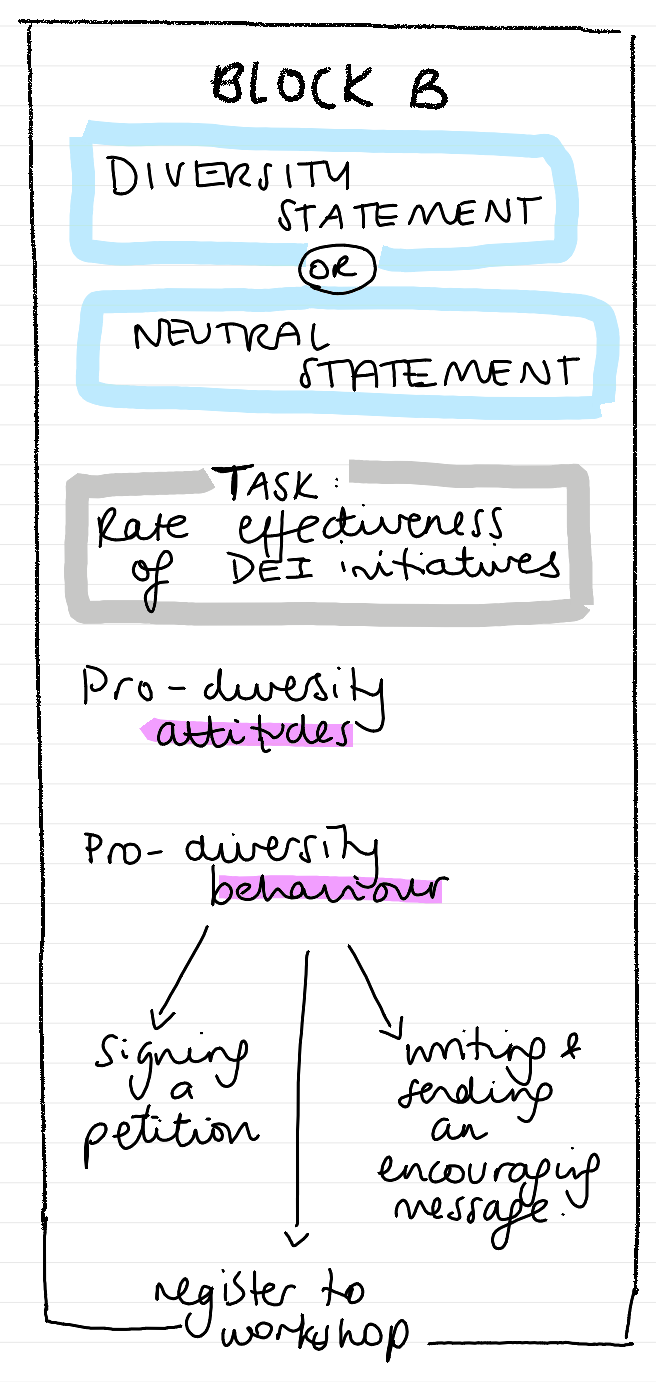 BLOCK B
DIVERSITY
STATEMENT
OR
NEUTRAL
STATEMENT
TASK:
Rate effectiveness
of DEI initiatives
Pro-diversity
attitudes
Pro-diversity
behaviour
signing
a
petition
writing &
sending
an
encouraging
message.
register to
workshop